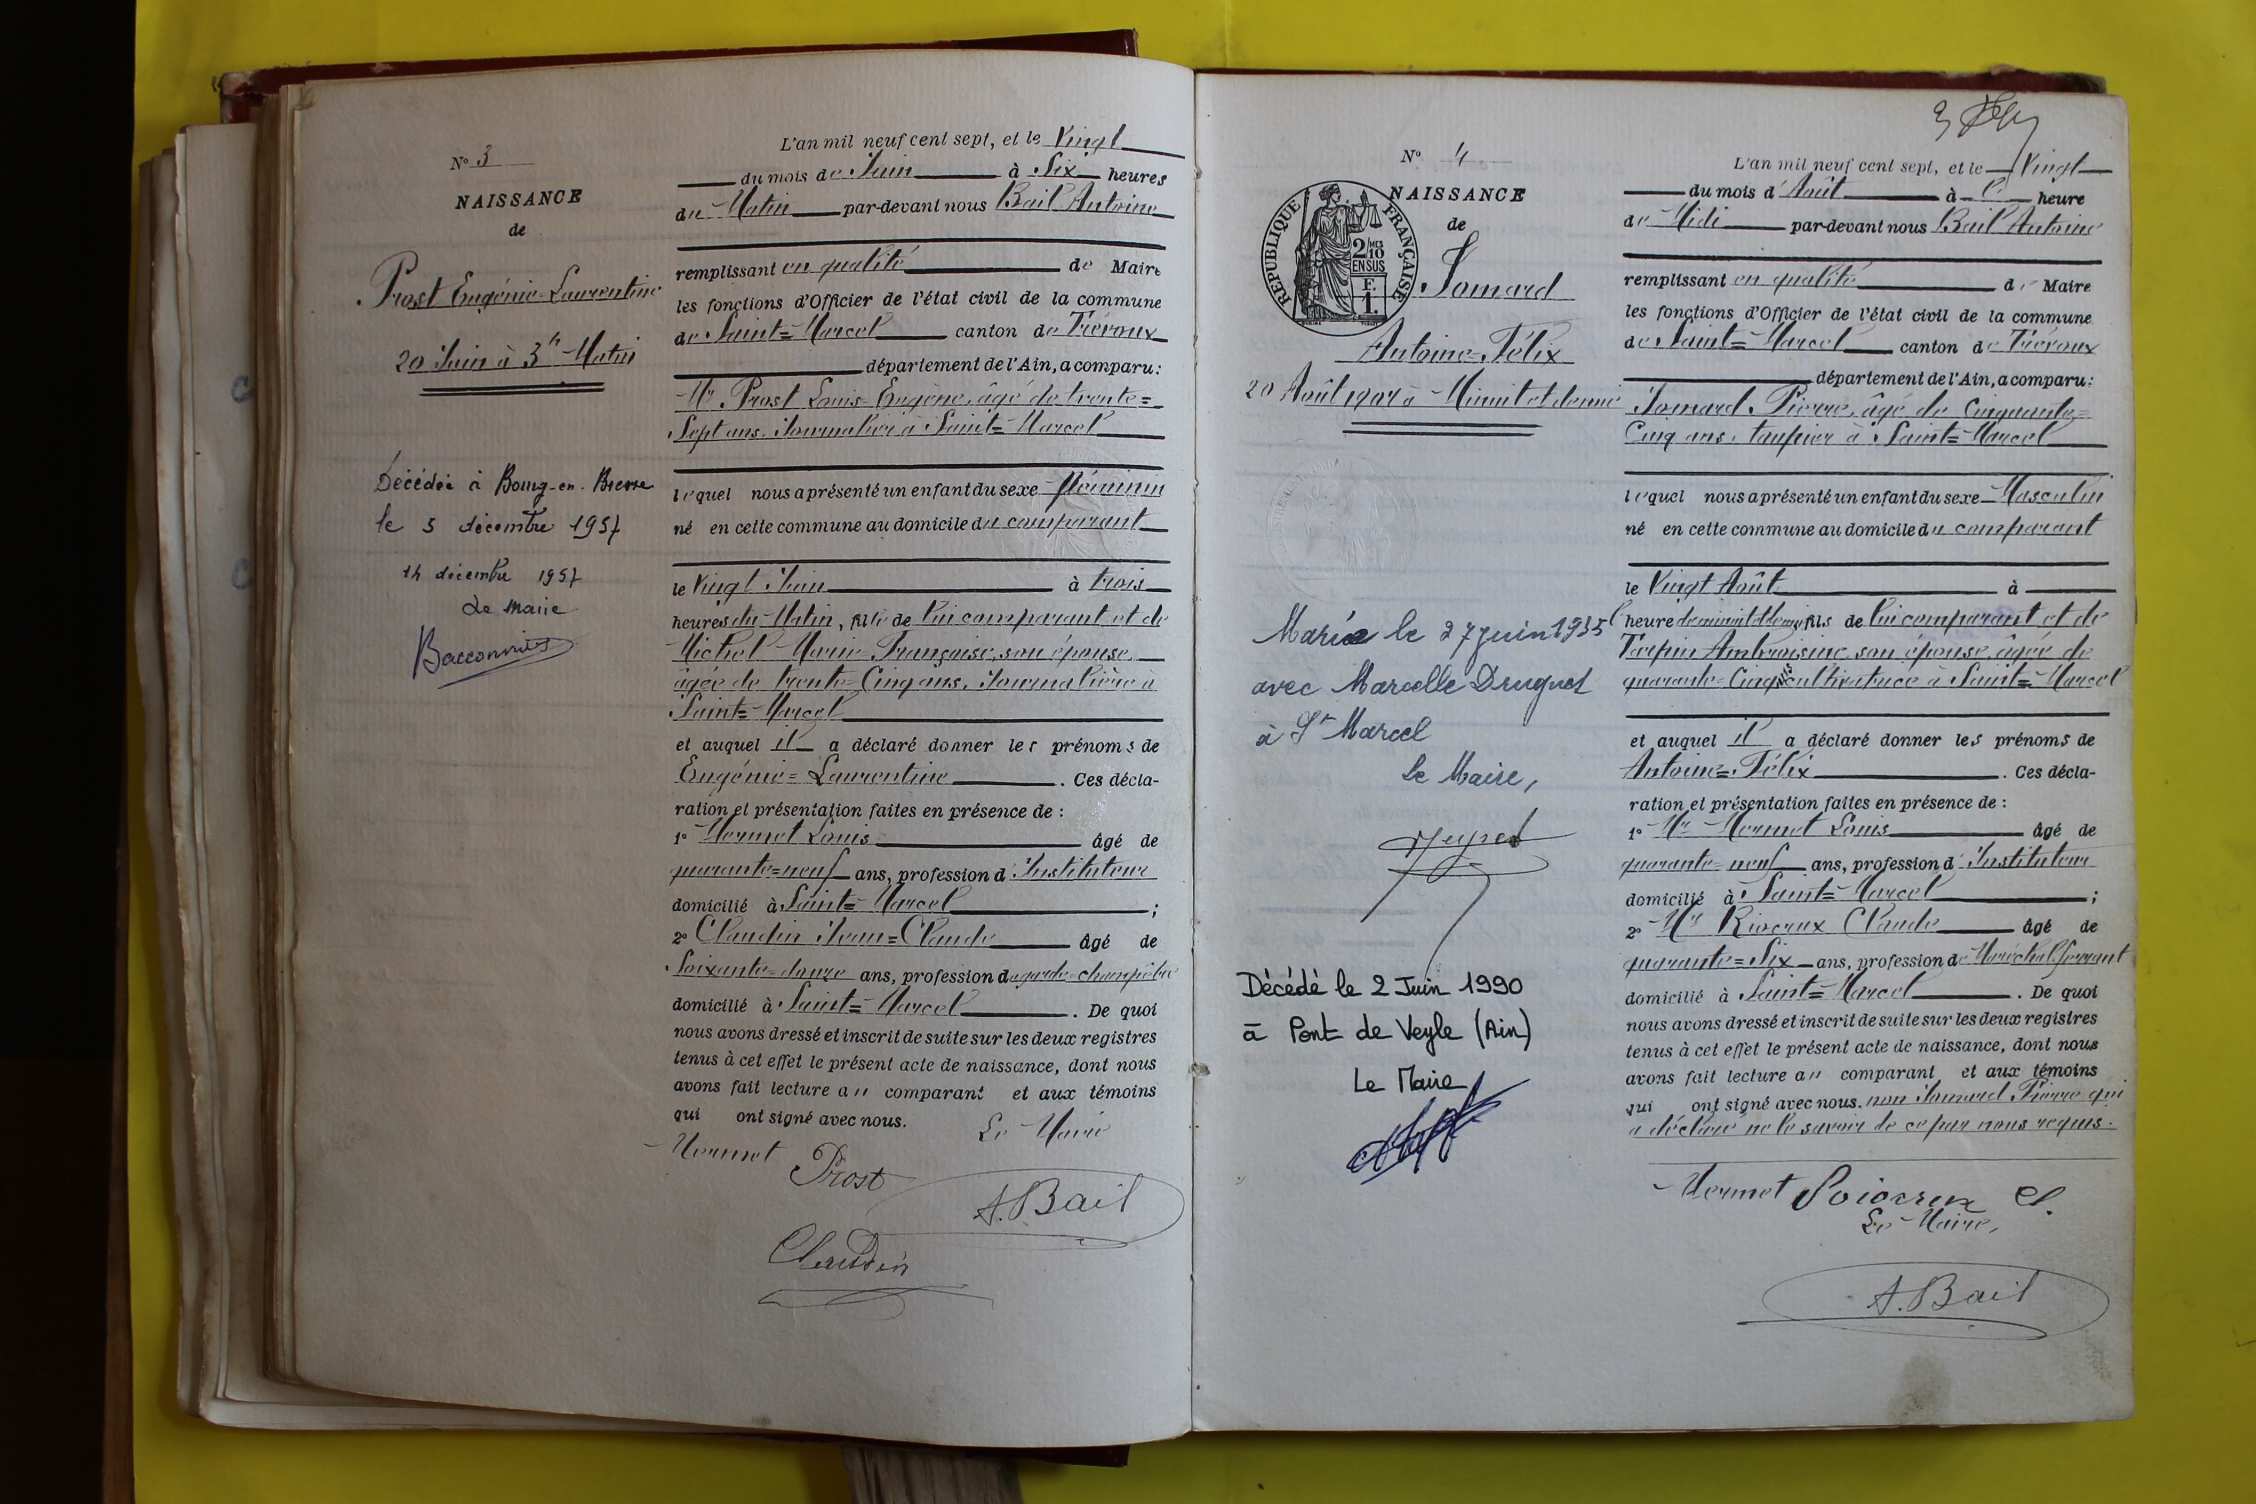 N° 3
NAISSANCE
de
Prost Eugénie=Laurentine
20 Juin à 3h Matin
Décédée à Bourg-en-Bresse
le 5 décembre 1957
14 décembre 1957
Le Maire
L'an mil neuf cent sept, et le Vingt
du mois de Juin à Six heures
du Matin par-devant nous Bail Antoine
remplissant en qualité de Maire
les fonctions d'Officier de l'état civil de la commune
de Saint=Marcel canton de Trévoux
département de l'Ain, a comparu:
Mr Prost Louis-Eugène, âgé de trente=
Sept ans, Journalier à Saint=Marcel
lequel nous a présenté un enfant du sexe féminin
né en cette commune au domicile du comparant
le Vingt Juin à trois
heures du Matin, fille de lui comparant et de
Michel Marie Françoise, son épouse,
âgée de trente=Cinq ans, Journalière à
Saint=Marcel
et auquel il a déclaré donner les prénoms de
Eugénie=Laurentine. Ces décla-
ration et présentation faites en présence de :
1° Mermet Louis âgé de
quarante=neuf ans, profession d'Instituteur
domicilié à Saint=Marcel ;
2° Claudin Jean=Claude âgé de
Soixante=douze ans, profession de garde=champêtre
domicilié à Saint=Marcel. De quoi
nous avons dressé et inscrit de suite sur les deux registres
tenus à cet effet le présent acte de naissance, dont nous
avons fait lecture au comparant et aux témoins
qui ont signé avec nous.
Le Maire
Mermet Prost
A. Bail
Claudin
N° 4
NAISSANCE
de
RÉPUBLIQUE FRANÇAISE
2/10 MES
EN SUS
F.
1.
Jomard
Antoine=Félix
20 Août 1907 à Minuit et demie
Marié le 27 juin 1935
avec Marcelle Druguet
à St Marcel
le Maire,
Décédé le 2 Juin 1990
à Pont de Veyle (Ain)
Le Maire
L'an mil neuf cent sept, et le Vingt
du mois d'Août à heure
de Midi par-devant nous Bail Antoine
remplissant en qualité de Maire
les fonctions d'Officier de l'état civil de la commune
de Saint=Marcel canton de Trévoux
département de l'Ain, a comparu:
Jomard Pierre, âgé de Cinquante=
Cinq ans, taupier à Saint=Marcel
lequel nous a présenté un enfant du sexe Masculin
né en cette commune au domicile du comparant
le Vingt Août à
heure de minuit et demie fils de lui comparant et de
Tarpin Ambroisine, son épouse, âgée de
quarante=Cinq ans cultivatrice à Saint=Marcel
et auquel il a déclaré donner les prénoms de
Antoine=Félix. Ces décla-
ration et présentation faites en présence de :
1° Mr Mermet Louis âgé de
quarante=neuf ans, profession d'Instituteur
domicilié à Saint=Marcel ;
2° Mr Rivoeux Claude âgé de
quarante=Six ans, profession de Maréchal ferrant
domicilié à Saint=Marcel. De quoi
nous avons dressé et inscrit de suite sur les deux registres
tenus à cet effet le présent acte de naissance, dont nous
avons fait lecture au comparant et aux témoins
qui ont signé avec nous. non Jomard Pierre qui
a déclaré ne le savoir de ce par nous requis.
Mermet
Le Maire,
A. Bail